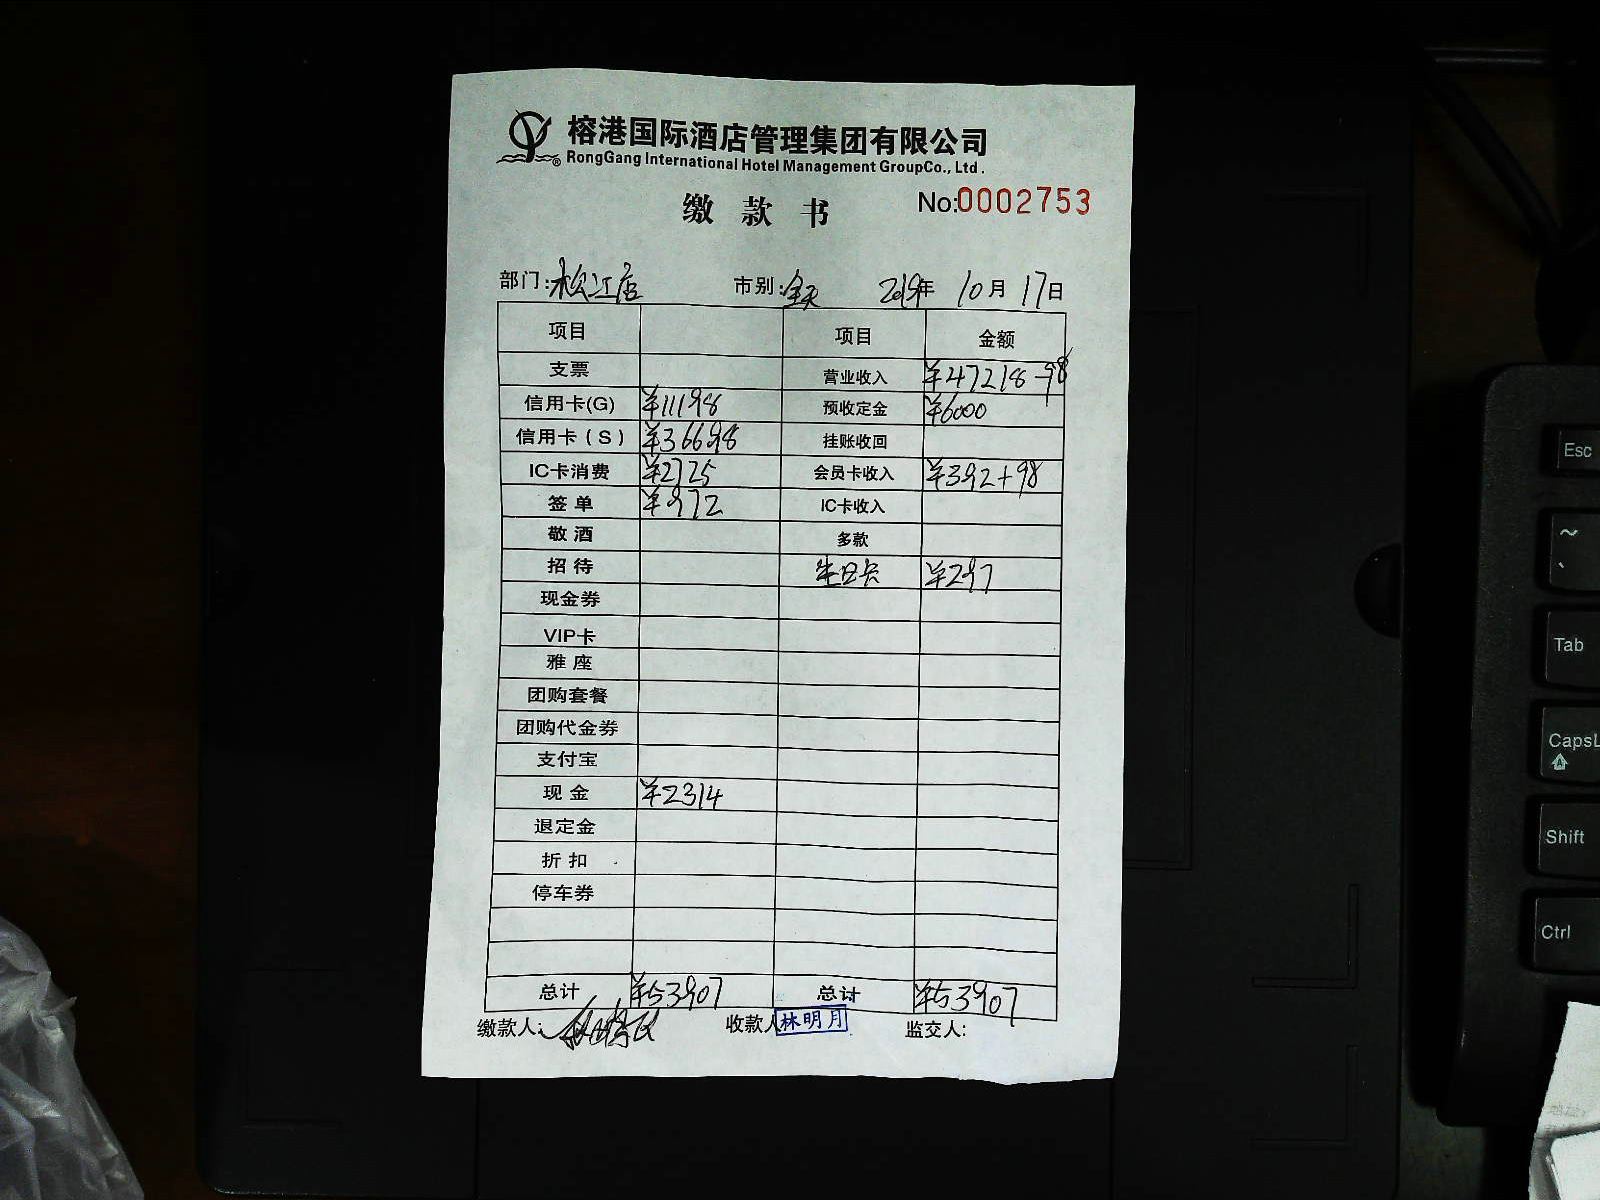 榕港国际酒店管理集团有限公司
® RongGang International Hotel Management GroupCo., Ltd.
缴款书 No:0002753
部门:松江店 市别:全天 2019年 10月 17日
项目 项目 金额
支票 营业收入 ¥47218-98
信用卡(G) ¥11198 预收定金 ¥6000
信用卡(S) ¥36698 挂账收回
IC卡消费 ¥2725 会员卡收入 ¥392+98
签单 ¥972 IC卡收入
敬酒 多款
招待 生日卡 ¥297
现金券
VIP卡
雅座
团购套餐
团购代金券
支付宝
现金 ¥2314
退定金
折扣
停车券
总计 ¥53907 总计 ¥53907
缴款人: 收款人 林明月 监交人:
Esc
~
Tab
CapsL
Shift
Ctrl